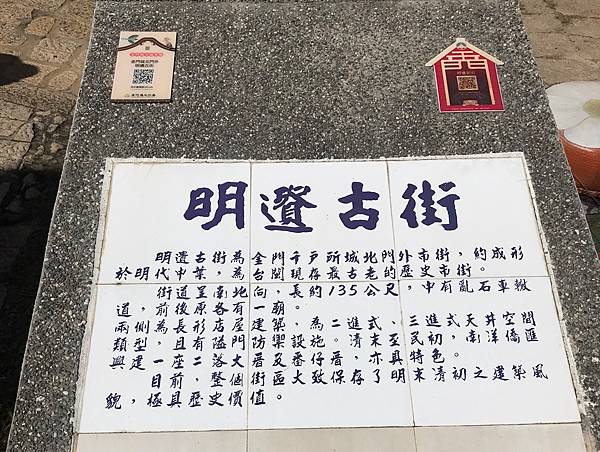 金門城北門外
明遺古街
明遺古街
明遺古街為金門千戶所城北門外市街，約成形
於明代中葉，為台閩現存最古老的歷史市街。
街道呈南北向，長約135公尺，中有亂石車轍
道，前後原各有一廟。
兩側為長形店屋建築，為二進式、三進式天井空間
類型，且有隘門防禦設施。清末、民初，南洋僑匯
興建一座二落大厝及番仔厝，亦至具特色。
目前，整個街區大致保存了明末清初之建築風
貌，極具歷史價值。